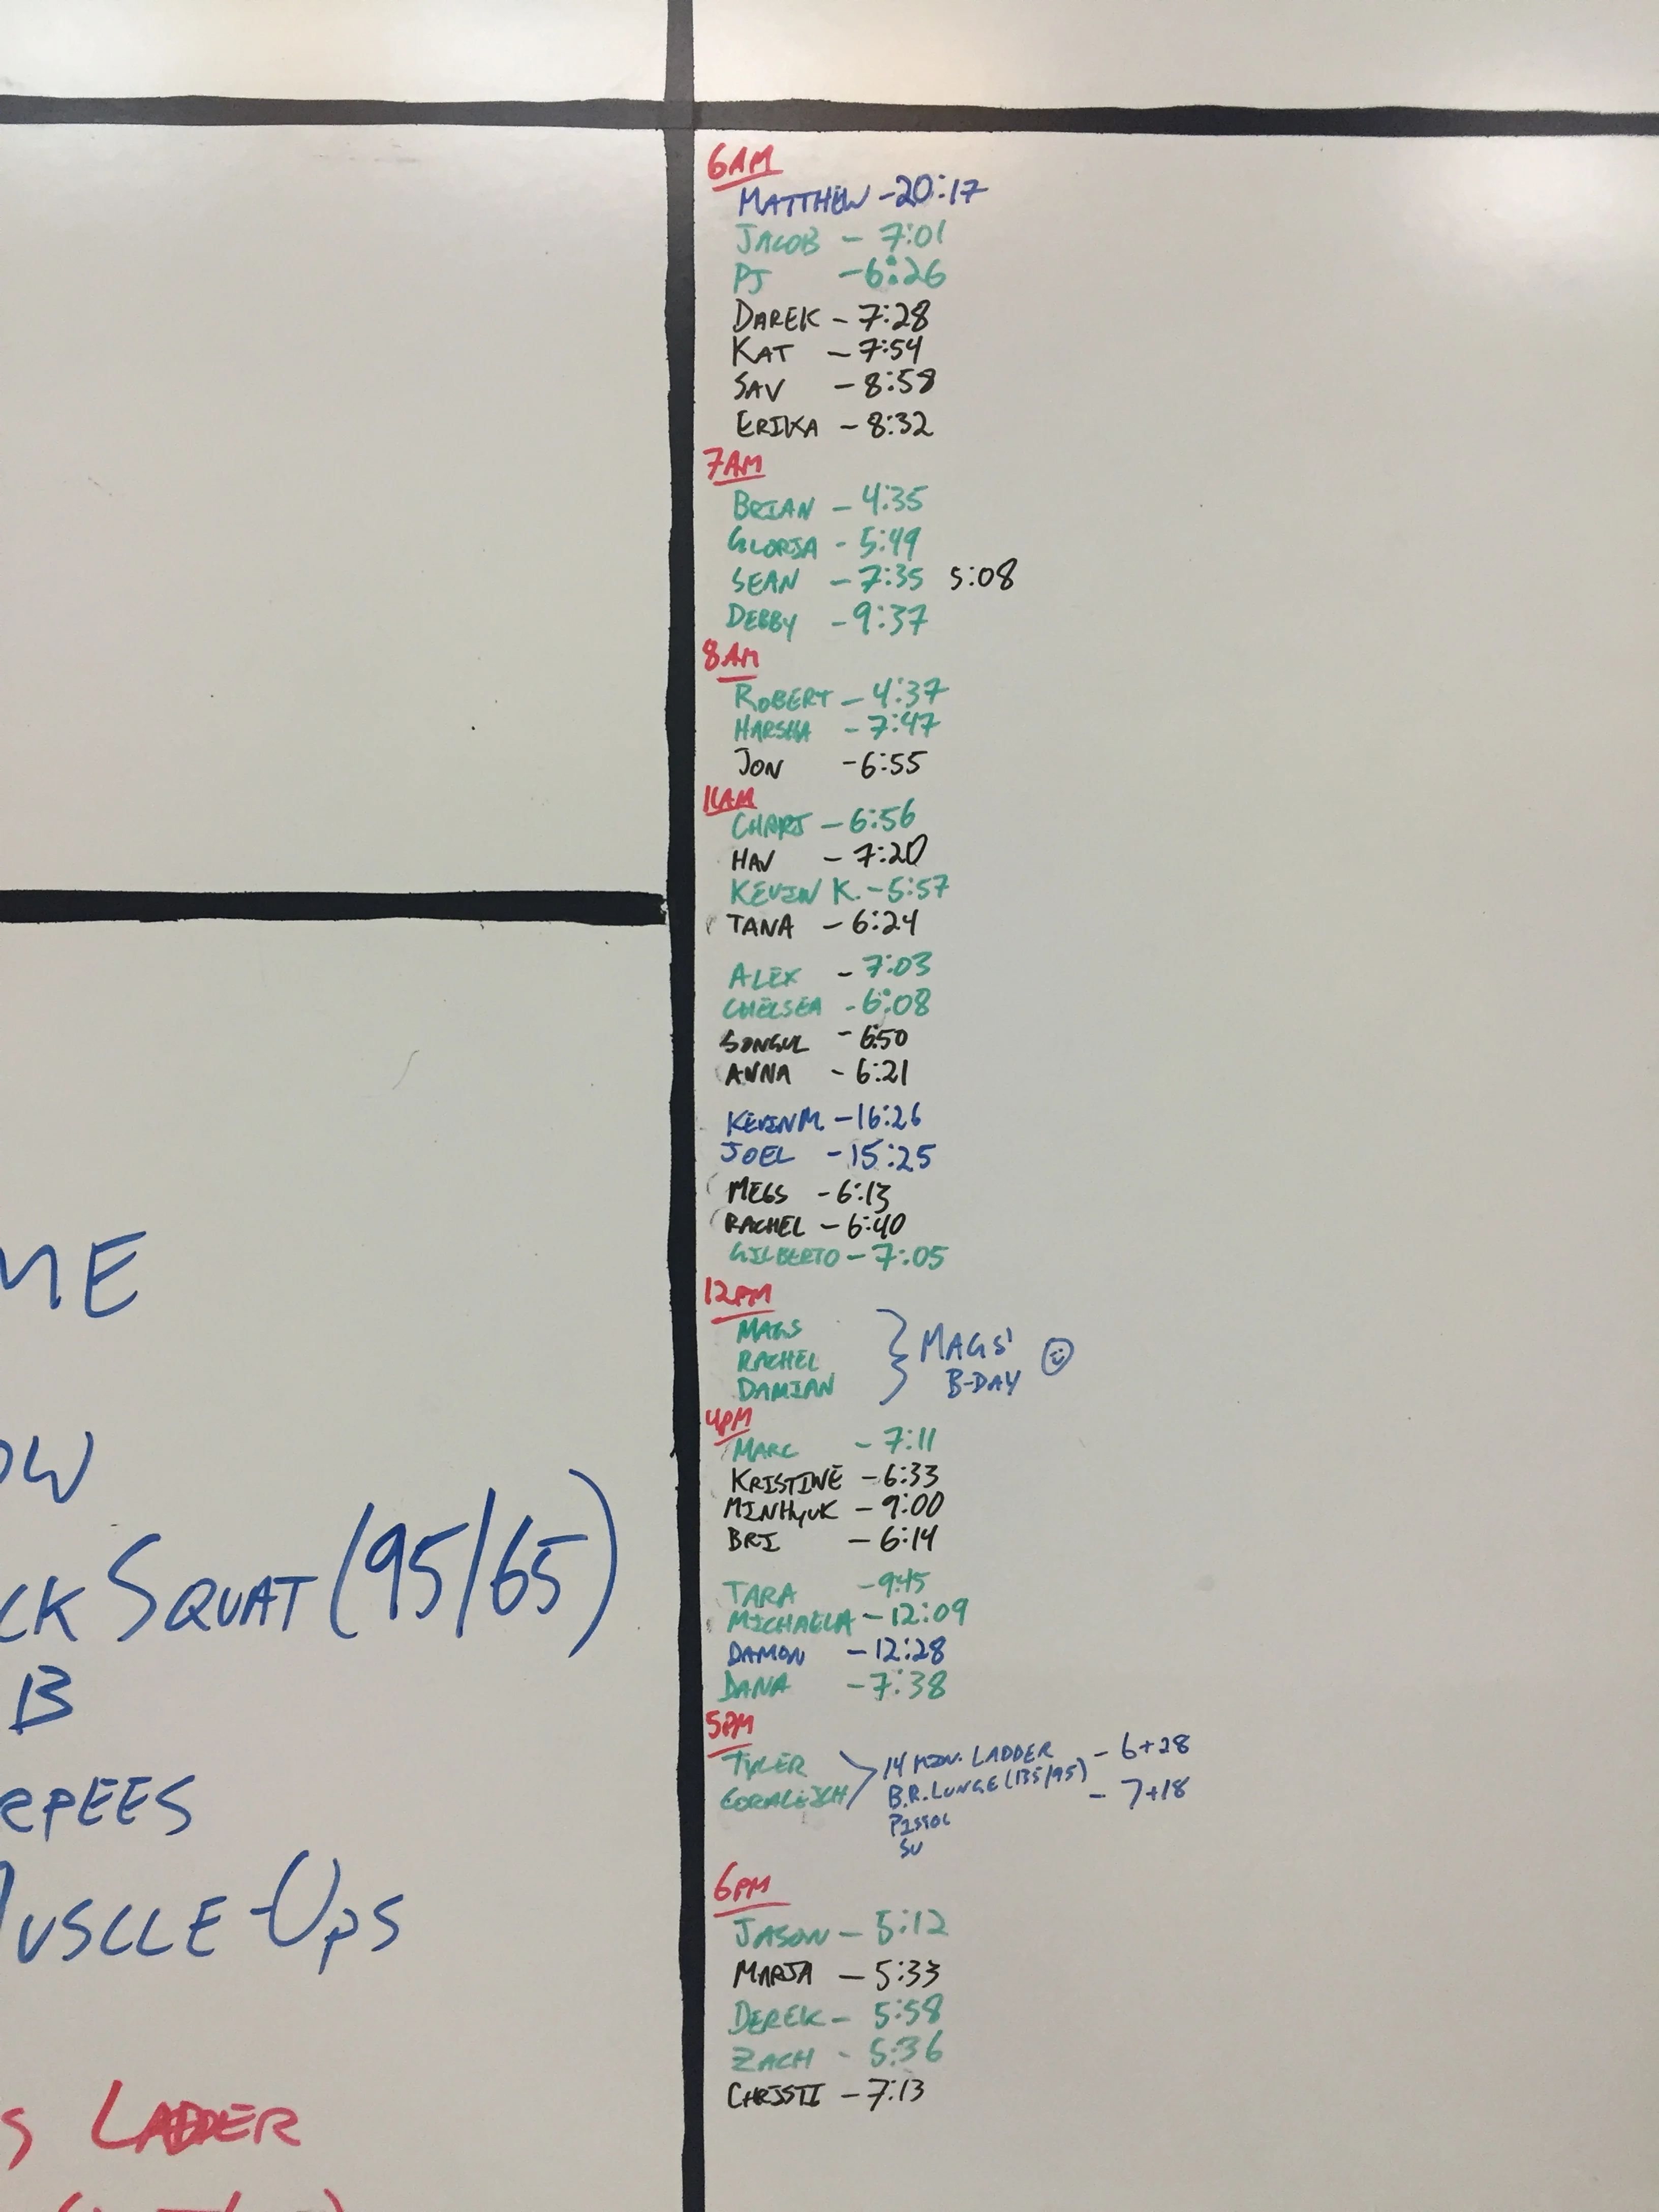 ME
OW
CK SQUAT (95/65)
B
RPEES
MUSCLE-UPS
S LADDER
6AM
MATTHEW - 20:17
JACOB - 7:01
PJ - 6:26
DAREK - 7:28
KAT - 7:54
SAV - 8:58
ERIKA - 8:32
7AM
BRIAN - 4:35
GLORIA - 5:49
SEAN - 7:35 5:08
DEBBY - 9:37
8AM
ROBERT - 4:37
HARSHA - 7:47
JON - 6:55
11AM
CHARI - 6:56
HAV - 7:20
KEVIN K. - 5:57
TANA - 6:24
ALEX - 7:03
CHELSEA - 6:08
SONGUL - 6:50
ANNA - 6:21
KEVIN M. - 16:26
JOEL - 15:25
MEGS - 6:13
RACHEL - 6:40
GILBERTO - 7:05
12PM
MAGS
RACHEL
DAMIAN
MAGS'
B-DAY
4PM
MARC - 7:11
KRISTINE - 6:33
MINHYUK - 9:00
BRI - 6:14
TARA - 9:45
MICHAELA - 12:09
DAMON - 12:28
DANA - 7:38
5PM
TYLER
CORALEIGH
14 MIN. LADDER - 6+28
B.R. LUNGE (135/95) - 7+18
PISTOL
SU
6PM
JASON - 5:12
MARIA - 5:33
DEREK - 5:58
ZACH - 5:36
CHRISTI - 7:13